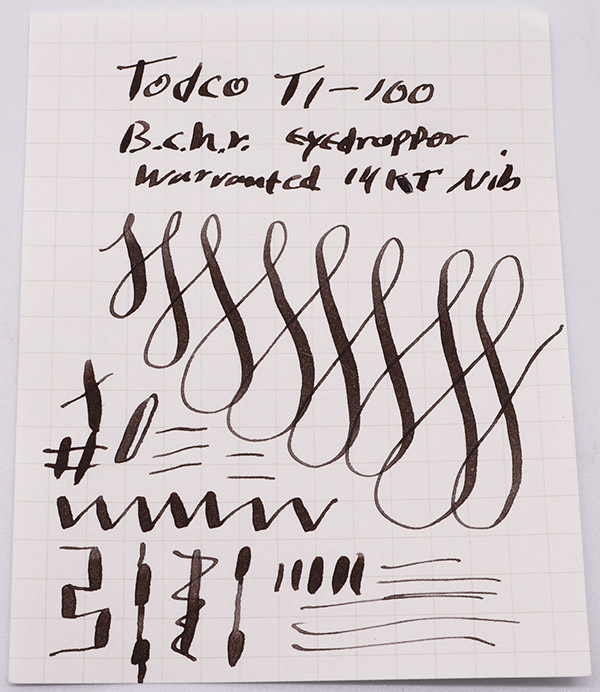 Todco T1-100
B.c.h.r. Eyedropper
Warranted 14KT Nib